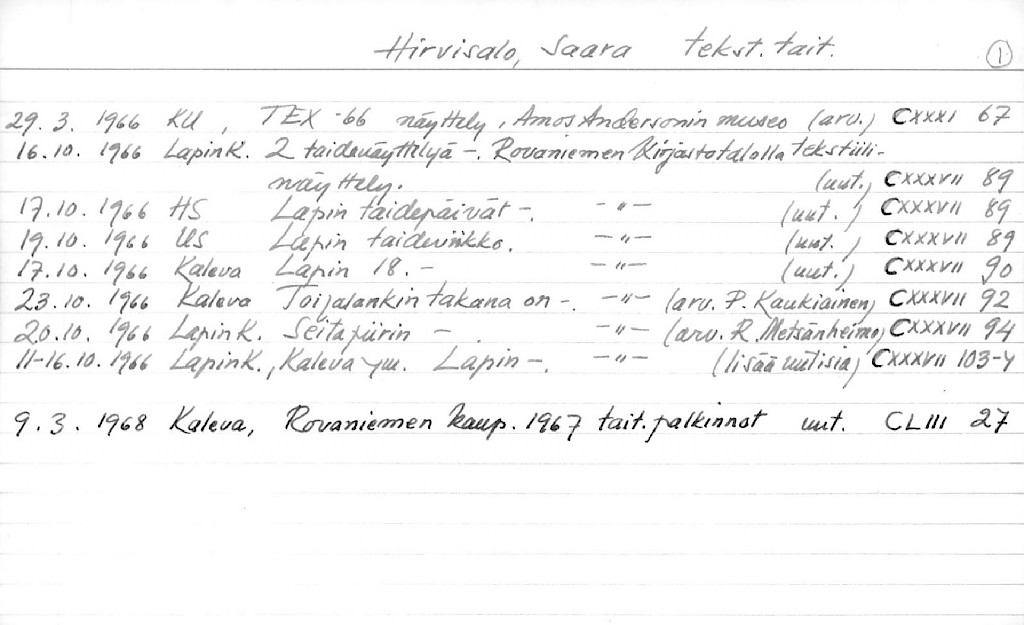 Hirvisalo, Saara tekst. tait. 1
29. 3. 1966 KU, TEX -66 näyttely, Amos Andersonin museo (arv.) CXXXI 67
16.10. 1966 Lapin K. 2 taidenäyttelyä -. Rovaniemen Kirjastotalolla tekstiili-
näyttely. (uut.) CXXXVII 89
17.10. 1966 HS Lapin taidepäivät -. -"- (uut.) CXXXVII 89
19.10. 1966 US Lapin taideviikko. -"- (uut.) CXXXVII 89
17.10. 1966 Kaleva Lapin 18. - -"- (uut.) CXXXVII 90
23.10. 1966 Kaleva takana on -. -"- (arv. P. Kaukiainen) CXXXVII 92
20.10. 1966 Lapin K. Seitapiirin - . -"- (arv. R. Metsänheimo) CXXXVII 94
11-16.10. 1966 Lapin K., Kaleva ym. Lapin -. -"- (lisää uutisia) CXXXVII 103-4
9. 3. 1968 Kaleva, Rovaniemen kaup. 1967 tait. palkinnot uut. CLIII 27